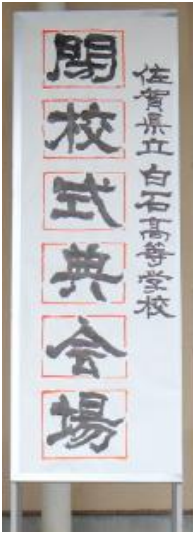 佐賀県立白石高等学校
開校式典会場